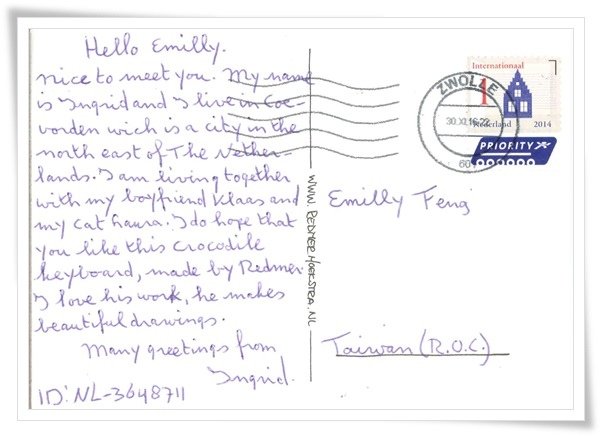 Hello Emilly.
nice to meet you. My name
is Ingrid and I live in Coe-
vorden wich is a city in the
north east of The Nether-
lands. I am living together
with my boyfriend Klaas and
my cat Laura. I do hope that
you like this Crocodile
keyboard, made by Redmer.
I love his work, he makes
beautiful drawings.
Many greetings from
Ingrid.
ID: NL-3648711
WWW.REDMERHOEKSTRA.NL
ZWOLLE
30.XI.16-22
60
Internationaal
1
Nederland 2014
PRIORITY
Emilly Feng
Taiwan (R.O.C.)